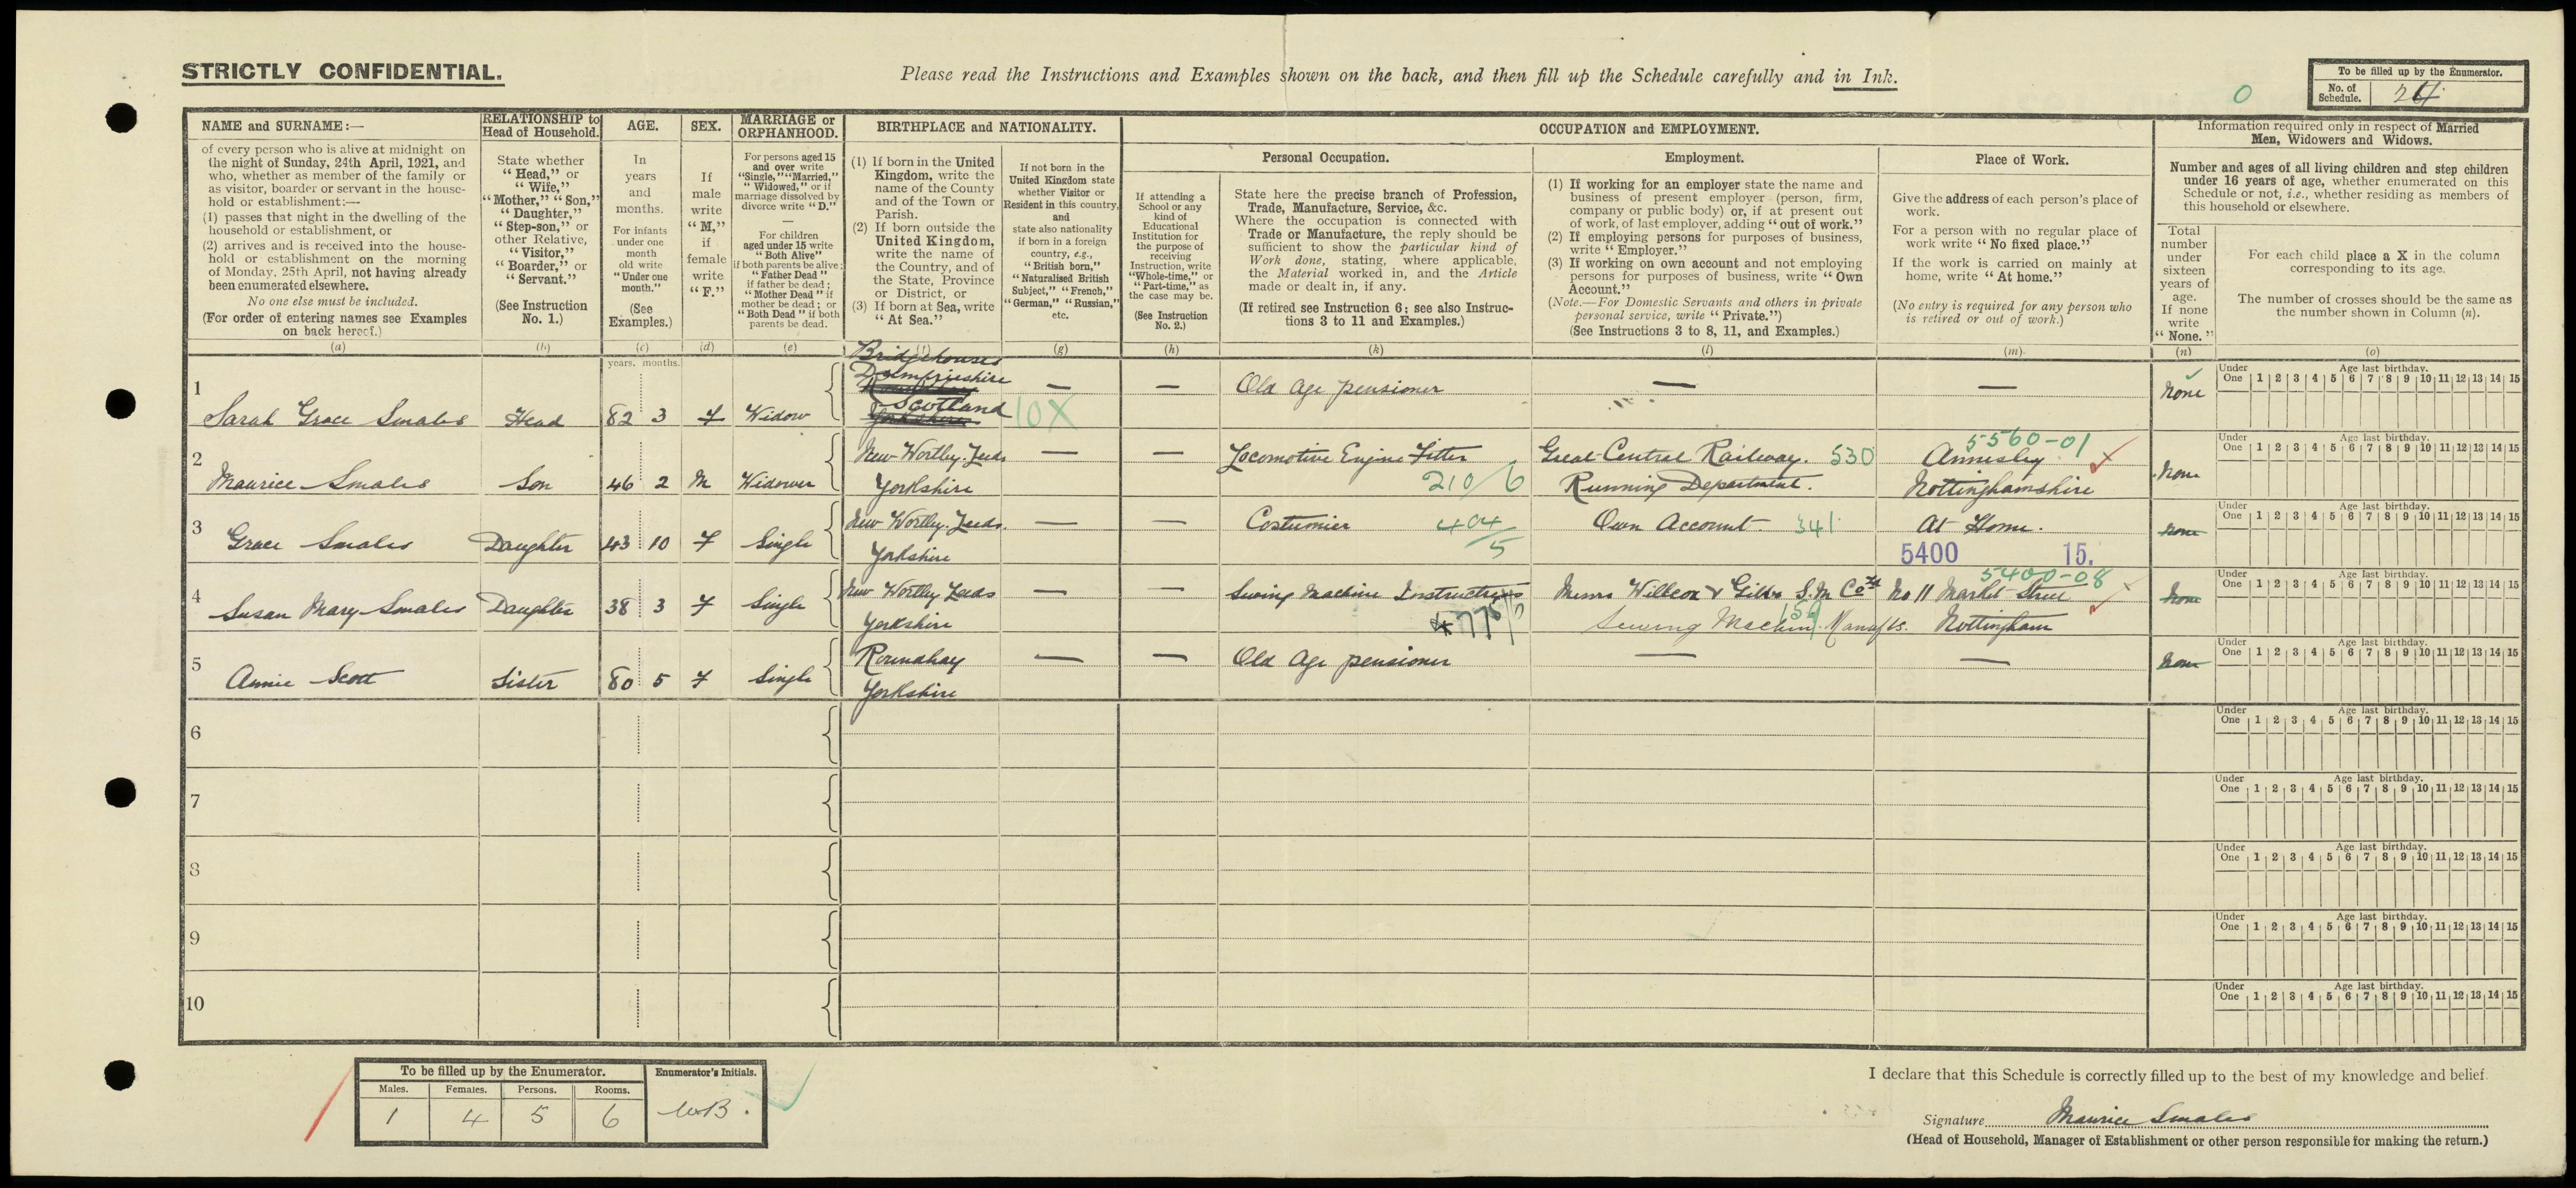 STRICTLY CONFIDENTIAL.
Please read the Instructions and Examples shown on the back, and then fill up the Schedule carefully and in Ink.
0
To be filled up by the Enumerator.
No. of Schedule. 24
NAME and SURNAME:—
of every person who is alive at midnight on
the night of Sunday, 24th April, 1921, and
who, whether as member of the family or
as visitor, boarder or servant in the house-
hold or establishment:—
(1) passes that night in the dwelling of the
household or establishment, or
(2) arrives and is received into the house-
hold or establishment on the morning
of Monday, 25th April, not having already
been enumerated elsewhere.
No one else must be included.
(For order of entering names see Examples
on back hereof.)
(a)
RELATIONSHIP to
Head of Household.
State whether
"Head," or
"Wife,"
"Mother," "Son,"
"Daughter,"
"Step-son," or
other Relative,
"Visitor,"
"Boarder," or
"Servant."
(See Instruction
No. 1.)
(b)
AGE.
In
years
and
months.
For infants
under one
month
old write
"Under one
month."
(See
Examples.)
(c)
years. months.
SEX.
If
male
write
"M,"
if
female
write
"F."
(d)
MARRIAGE or
ORPHANHOOD.
For persons aged 15
and over write
"Single," "Married,"
"Widowed," or if
marriage dissolved by
divorce write "D."
—
For children
aged under 15 write
"Both Alive"
if both parents be alive;
"Father Dead"
if father be dead;
"Mother Dead" if
mother be dead; or
"Both Dead" if both
parents be dead.
(e)
BIRTHPLACE and NATIONALITY.
(1) If born in the United
Kingdom, write the
name of the County
and of the Town or
Parish.
(2) If born outside the
United Kingdom,
write the name of
the Country, and of
the State, Province
or District, or
(3) If born at Sea, write
"At Sea."
(f)
If not born in the
United Kingdom state
whether Visitor or
Resident in this country,
and
state also nationality
if born in a foreign
country, e.g.,
"British born,"
"Naturalised British
Subject," "French,"
"German," "Russian,"
etc.
(g)
OCCUPATION and EMPLOYMENT.
If attending a
School or any
kind of
Educational
Institution for
the purpose of
receiving
Instruction, write
"Whole-time," or
"Part-time," as
the case may be.
(See Instruction
No. 2.)
(h)
Personal Occupation.
State here the precise branch of Profession,
Trade, Manufacture, Service, &c.
Where the occupation is connected with
Trade or Manufacture, the reply should be
sufficient to show the particular kind of
Work done, stating, where applicable,
the Material worked in, and the Article
made or dealt in, if any.
(If retired see Instruction 6; see also Instruc-
tions 3 to 11 and Examples.)
(k)
Employment.
(1) If working for an employer state the name and
business of present employer (person, firm,
company or public body) or, if at present out
of work, of last employer, adding "out of work."
(2) If employing persons for purposes of business,
write "Employer."
(3) If working on own account and not employing
persons for purposes of business, write "Own
Account."
(Note.—For Domestic Servants and others in private
personal service, write "Private.")
(See Instructions 3 to 8, 11, and Examples.)
(l)
Place of Work.
Give the address of each person's place of
work.
For a person with no regular place of
work write "No fixed place."
If the work is carried on mainly at
home, write "At home."
(No entry is required for any person who
is retired or out of work.)
(m)
Information required only in respect of Married
Men, Widowers and Widows.
Number and ages of all living children and step children
under 16 years of age, whether enumerated on this
Schedule or not, i.e., whether residing as members of
this household or elsewhere.
Total
number
under
sixteen
years of
age.
If none
write
"None."
(n)
For each child place a X in the column
corresponding to its age.
The number of crosses should be the same as
the number shown in Column (n).
(o)
Bridgehouses
Dumfrieshire
Scotland
1 Sarah Grace Smales Head 82 3 F Widow — 10X — Old Age pensioner — — None
Under One Age last birthday. 1 2 3 4 5 6 7 8 9 10 11 12 13 14 15
2 Maurice Smales Son 46 2 M Widower New Wortley. Leeds — — Locomotive Engine Fitter Great Central Railway. 530 Annesley 5560-01 None
Yorkshire 210/6 Running Department. Nottinghamshire
Under One Age last birthday. 1 2 3 4 5 6 7 8 9 10 11 12 13 14 15
3 Grace Smales Daughter 43 10 F Single New Wortley. Leeds. — — Costumier 404/5 Own Account 341 At Home. None
Yorkshire 5400 15.
Under One Age last birthday. 1 2 3 4 5 6 7 8 9 10 11 12 13 14 15
4 Susan Mary Smales Daughter 38 3 F Single New Wortley Leeds — — Sewing Machine Instructress Messrs Willcox & Gibbs S.M. Co Ltd No 11 Market Street 5400-08 None
Yorkshire Sewing Machine Manufrs. Nottingham
Under One Age last birthday. 1 2 3 4 5 6 7 8 9 10 11 12 13 14 15
5 Annie Scott Sister 80 5 F Single Roundhay — — Old Age pensioner — — None
Yorkshire
Under One Age last birthday. 1 2 3 4 5 6 7 8 9 10 11 12 13 14 15
6
Under One Age last birthday. 1 2 3 4 5 6 7 8 9 10 11 12 13 14 15
7
Under One Age last birthday. 1 2 3 4 5 6 7 8 9 10 11 12 13 14 15
8
Under One Age last birthday. 1 2 3 4 5 6 7 8 9 10 11 12 13 14 15
9
Under One Age last birthday. 1 2 3 4 5 6 7 8 9 10 11 12 13 14 15
10
Under One Age last birthday. 1 2 3 4 5 6 7 8 9 10 11 12 13 14 15
To be filled up by the Enumerator. Enumerator's Initials.
Males. Females. Persons. Rooms.
1 4 5 6 WB.
I declare that this Schedule is correctly filled up to the best of my knowledge and belief.
Signature Maurice Smales
(Head of Household, Manager of Establishment or other person responsible for making the return.)